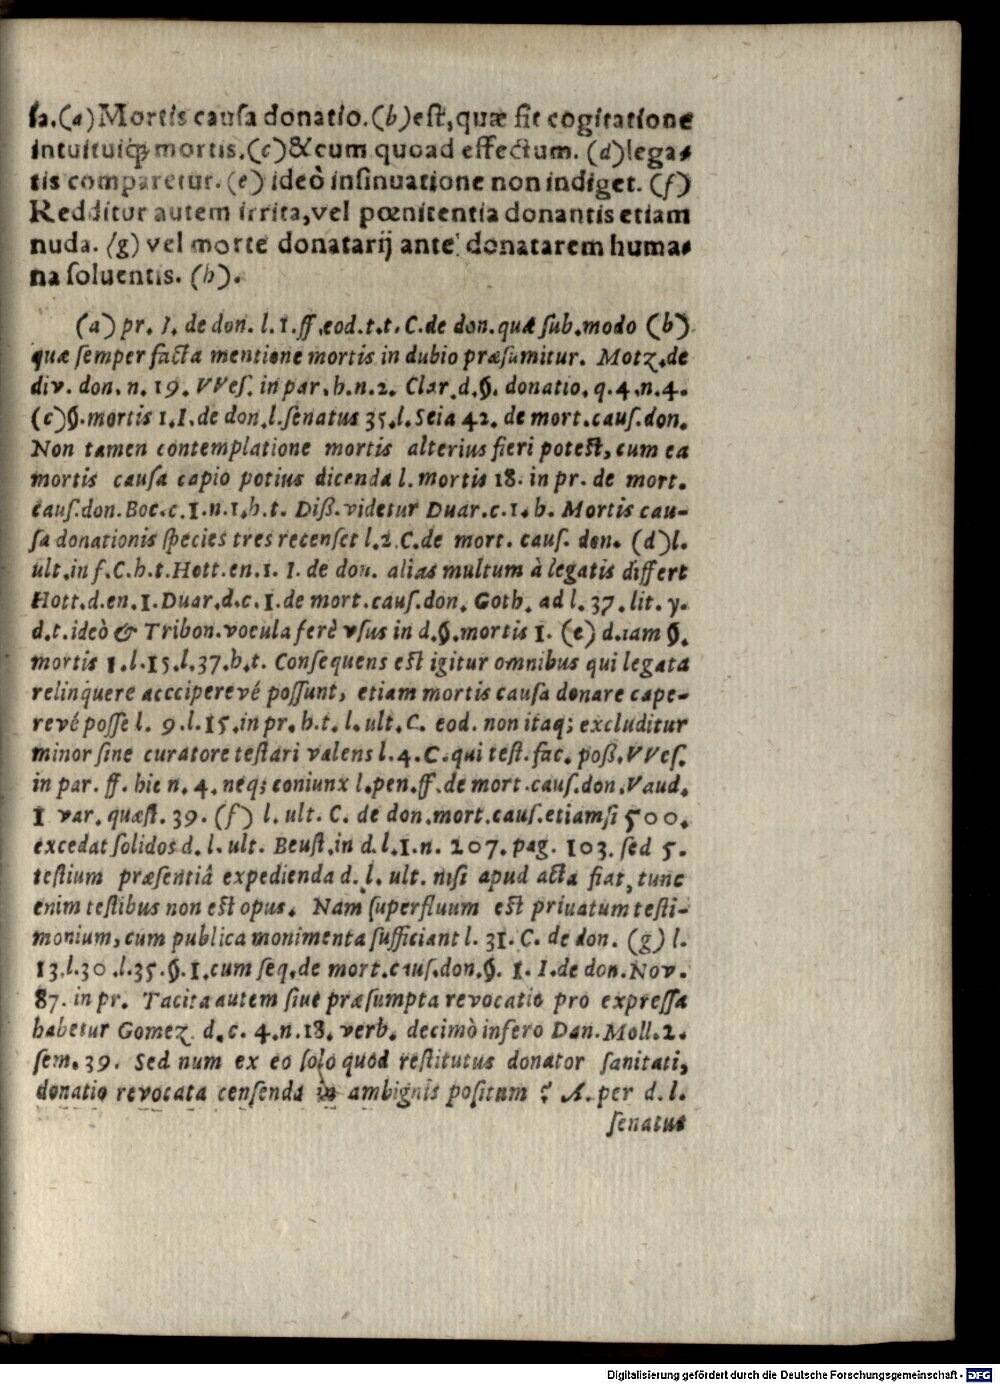 ſa.(a)Mortis cauſa donatio.(b)eſt,quæ fit cogitatione
intuituiq́; mortis.(c)&cum quoad effectum. (d)lega-
tis comparetur. (e) ideò inſinuatione non indiget. (f)
Redditur autem irrita,vel pœnitentia donantis etiam
nuda. (g) vel morte donatarij ante donatarem huma-
na ſoluentis. (h).
(a) pr. I. de don. l. 1. ff. eod.t.t. C.de don.quæ ſub.modo (b)
quæ ſemper facta mentione mortis in dubio præſumitur. Motz.de
div. don. n. 19. VVeſ. in par. h.n.2. Clar.d.§. donatio. q.4.n.4.
(c)§.mortis 1. I.de don.l.ſenatus 35.l. Seia 42. de mort.cauſ.don.
Non tamen contemplatione mortis alterius fieri poteſt, cum ea
mortis cauſa capio potius dicenda l. mortis 18. in pr. de mort.
cauſ.don. Boc.c.1.n.1.h.t. Diß. videtur Duar.c.1.h. Mortis cau-
ſa donationis ſpecies tres recenſet l.2.C.de mort. cauſ. don. (d)l.
ult.in f.C.h.t.Hott.en.1. I. de don. alias multum à legatis differt
Hott.d.en.1.Duar.d.c.1.de mort.cauſ.don. Goth. ad l. 37. lit. y.
d.t.ideò & Tribon.vocula ferè vſus in d.§.mortis 1. (e) d.iam §.
mortis 1.l.15.l.37.h.t. Conſequens eſt igitur omnibus qui legata
relinquere acccipereve poſſunt, etiam mortis cauſa donare cape-
revé poſſe l. 9.l.15.in pr. h.t. l. ult. C. eod. non itaq; excluditur
minor ſine curatore teſtari valens l.4. C.qui teſt.fac. poß. VVeſ.
in par. ff. hic n. 4. neq; coniunx l.pen.ff.de mort.cauſ.don. Vaud.
1 var. quæſt. 39. (f) l. ult. C. de don.mort.cauſ.etiamſi 500.
excedat ſolidos d. l. ult. Beuſt.in d.l.1.n. 207. pag. 103. ſed 5.
teſtium præſentiâ expedienda d. l. ult. niſi apud acta fiat, tunc
enim teſtibus non eſt opus. Nam ſuperfluum eſt priuatum teſti-
monium, cum publica monimenta ſufficiant l. 31. C. de don. (g) l.
13.l.30.l.35.§.1.cum ſeq.de mort.cauſ.don.§. 1. I.de don.Nov.
87. in pr. Tacita autem ſiue præſumpta revocatio pro expreſſa
habetur Gomez. d.c. 4.n.18. verb. decimò infero Dan. Moll.2.
ſem.39. Sed num ex eo ſolo quod reſtitutus donator ſanitati,
donatio revocata cenſenda in ambiguis poſitum ? A. per d. l.
ſenatus
Digitalisierung gefördert durch die Deutsche Forschungsgemeinschaft - DFG